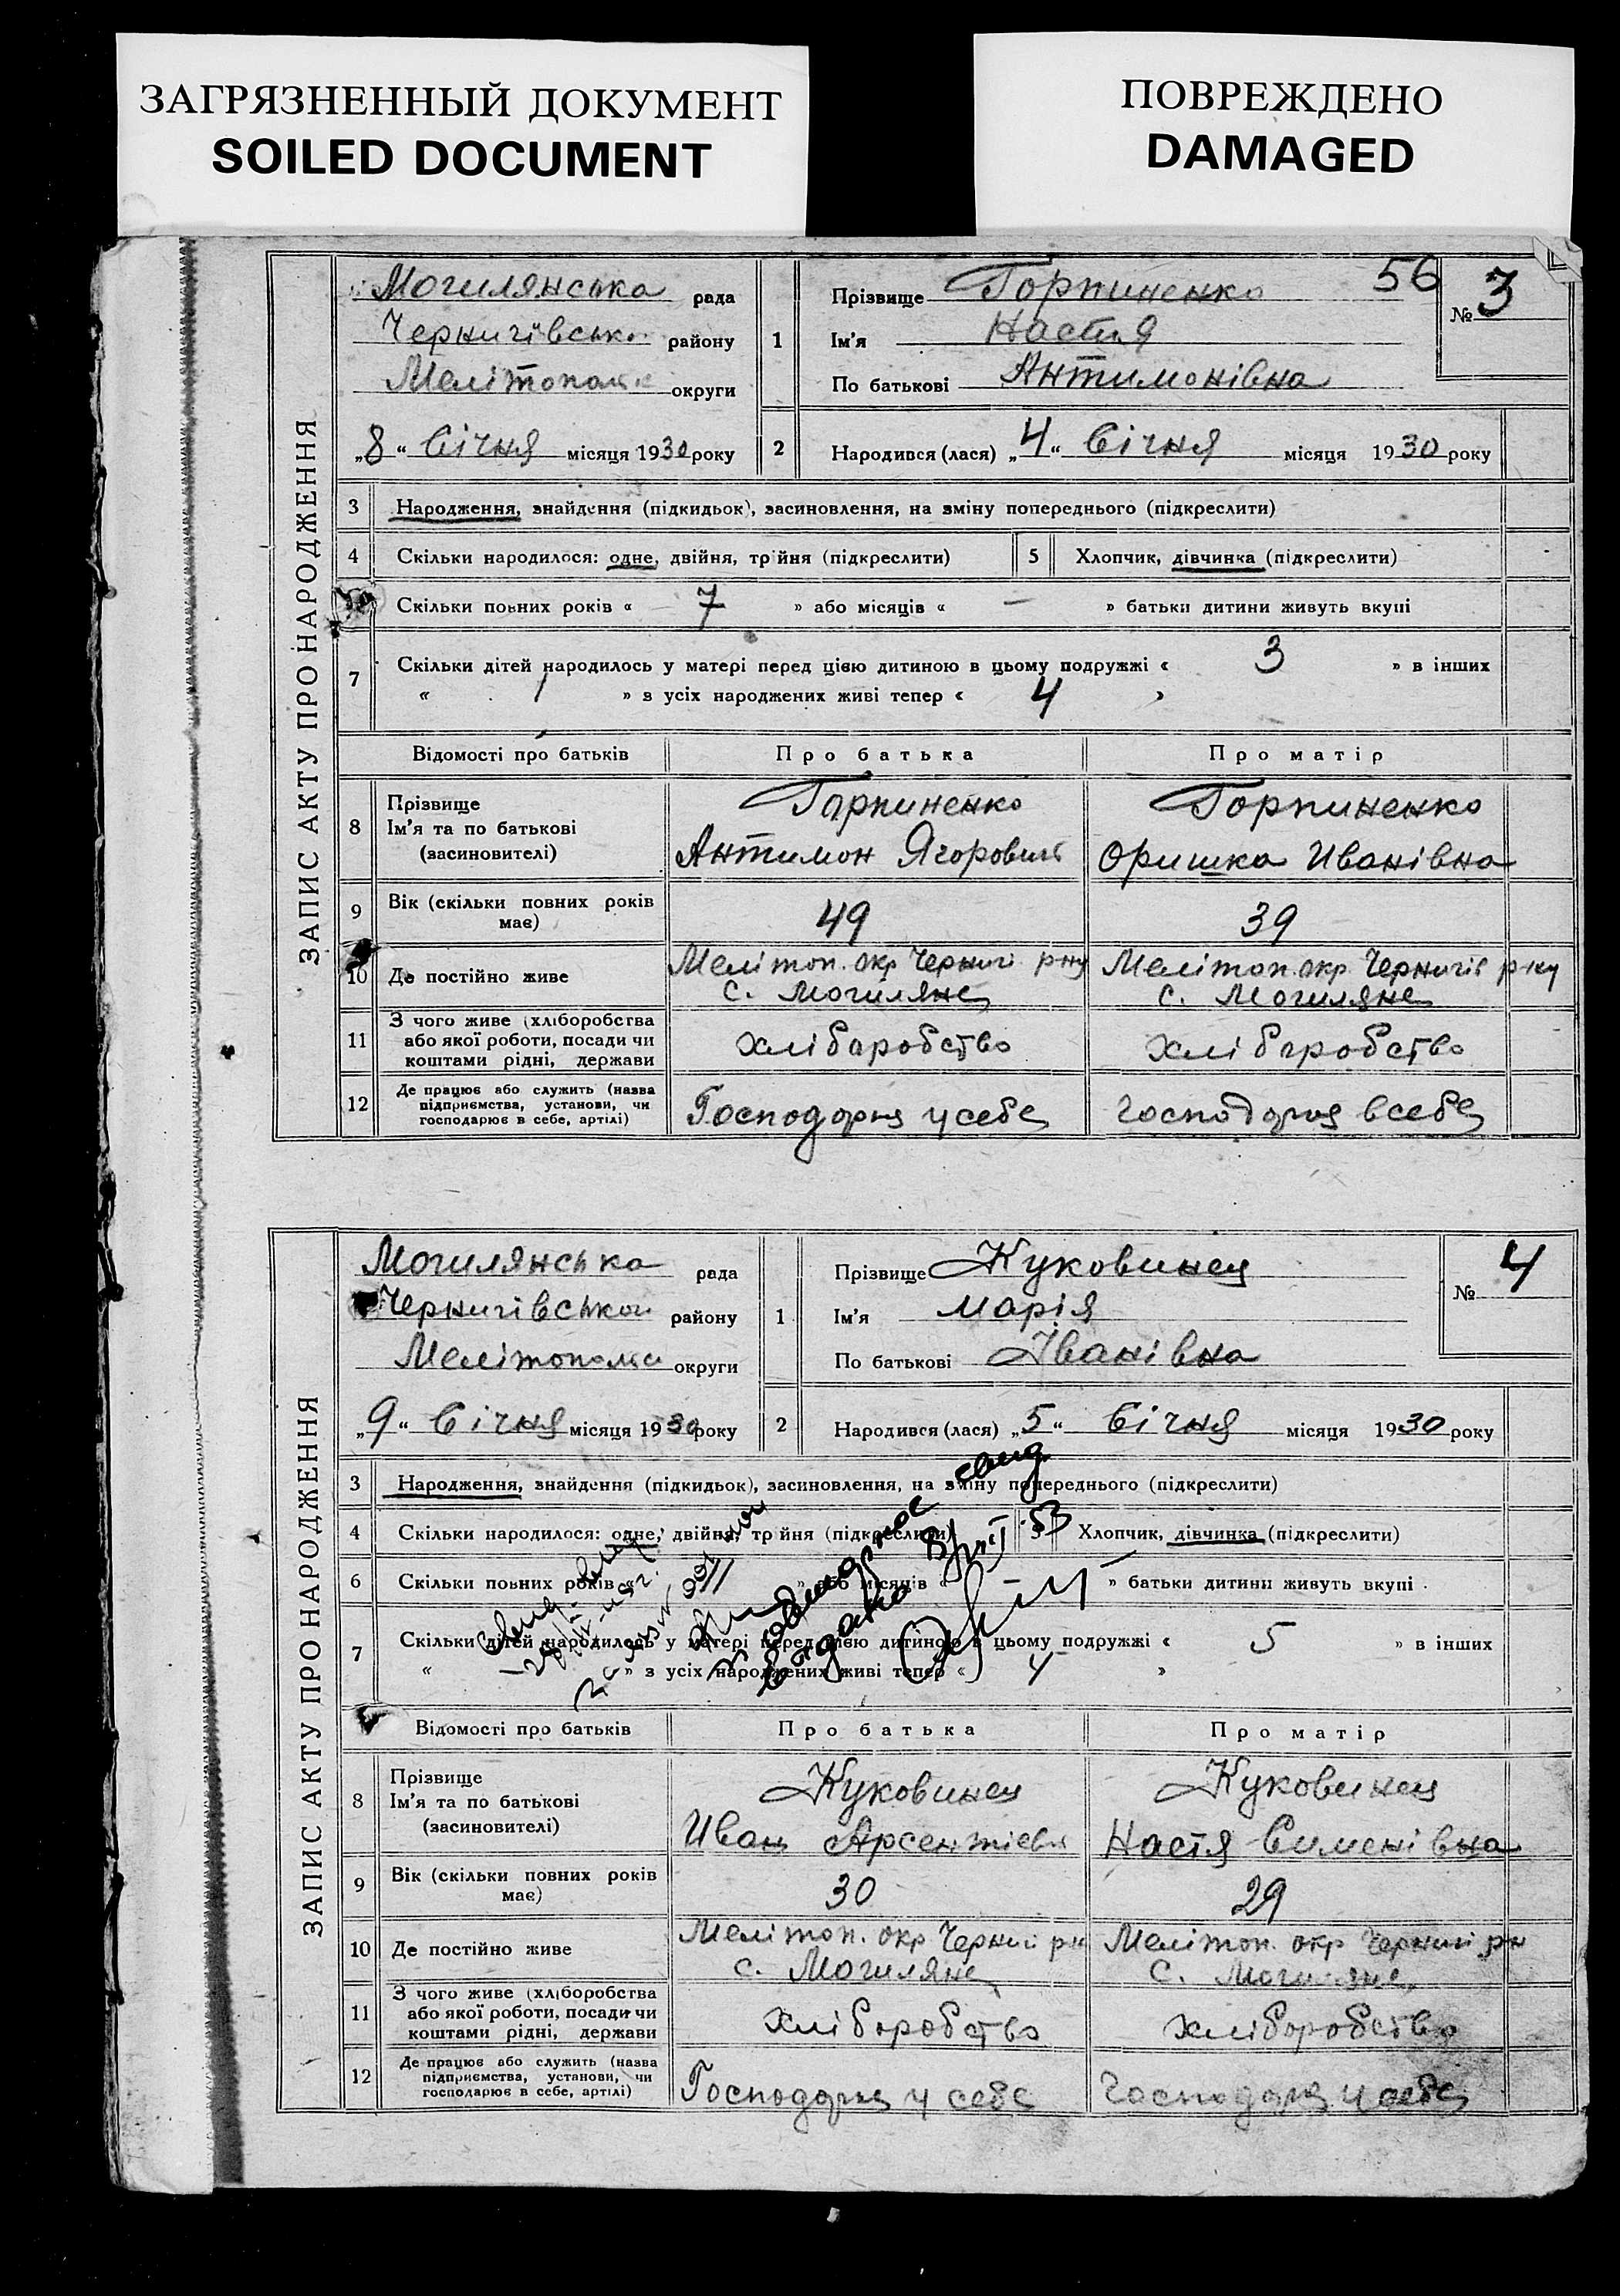 ЗАГРЯЗНЕННЫЙ ДОКУМЕНТ
SOILED DOCUMENT
ПОВРЕЖДЕНО
DAMAGED
56
ЗАПИС АКТУ ПРО НАРОДЖЕННЯ
Могилянська рада
Чернигівсько району
Мелітополь округи
„8“ Січня місяця 1930 року
1 Прізвище Горпиненко
Ім'я Настя
По батькові Антимонівна
№ 3
2 Народився (лася) „4“ Січня місяця 1930 року
3 Народження, знайдення (підкидьок), засиновлення, на зміну попереднього (підкреслити)
4 Скільки народилося: одне, двійня, трійня (підкреслити) 5 Хлопчик, дівчинка (підкреслити)
Скільки повних років « 7 » або місяців « — » батьки дитини живуть вкупі
7 Скільки дітей народилось у матері перед цією дитиною в цьому подружжі « 3 » в інших
« 1 » з усіх народжених живі тепер « 4 »
Відомості про батьків Про батька Про матір
8 Прізвище Ім'я та по батькові (засиновителі)
Горпиненко Антимон Ягорович
Горпиненко Оришка Иванівна
9 Вік (скільки повних років має) 49 39
10 Де постійно живе
Мелітоп. окр Черниги р-ну с. Могиляне
Мелітоп. окр Чернигів р-ну с. Могиляне
11 З чого живе (хліборобства або якої роботи, посади чи коштами рідні, держави
хліборобство хліборобство
12 Де працює або служить (назва підприємства, установи, чи господарює в себе, артілі)
Господорня у себе Господорня всебе
ЗАПИС АКТУ ПРО НАРОДЖЕННЯ
Могилянська рада
Чернигівської району
Мелітополь округи
„9“ Січня місяця 1930 року
1 Прізвище Куковинец
Ім'я Марія
По батькові Іванівна
№ 4
2 Народився (лася) „5“ Січня місяця 1930 року
3 Народження, знайдення (підкидьок), засиновлення, на зміну попереднього (підкреслити)
4 Скільки народилося: одне, двійня, трійня (підкреслити) 5 Хлопчик, дівчинка (підкреслити)
6 Скільки повних років « » або місяців « » батьки дитини живуть вкупі
7 Скільки дітей народилось у матері перед цією дитиною в цьому подружжі « 5 » в інших
« » з усіх народжених живі тепер « 4 »
Відомості про батьків Про батька Про матір
8 Прізвище Ім'я та по батькові (засиновителі)
Куковинец Иван Арсентієви
Куковинец Настя Сименівна
9 Вік (скільки повних років має) 30 29
10 Де постійно живе
Мелітоп. окр Черниг рн с. Могиляне
Мелітоп. окр Черниг рн с. Могиляне
11 З чого живе (хліборобства або якої роботи, посади чи коштами рідні, держави
хліборобство хліборобство
12 Де працює або служить (назва підприємства, установи, чи господарює в себе, артілі)
Господорня у себе Господорня у себе